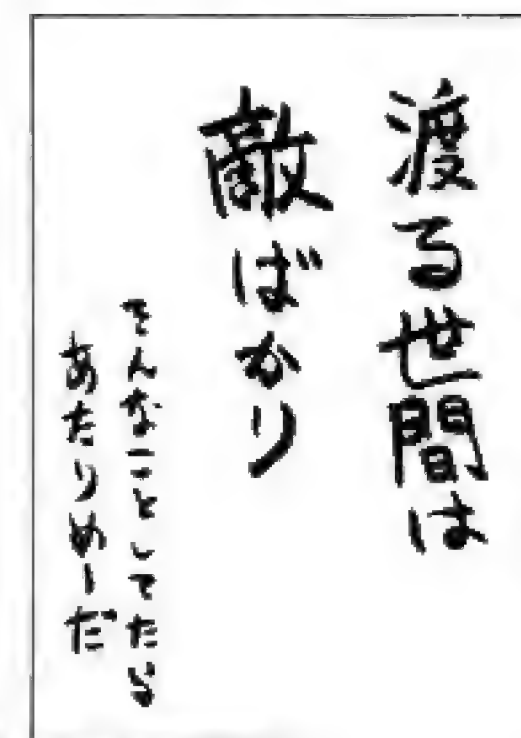 渡る世間は
敵ばかり
そんなことしてたら
あたりめーだ